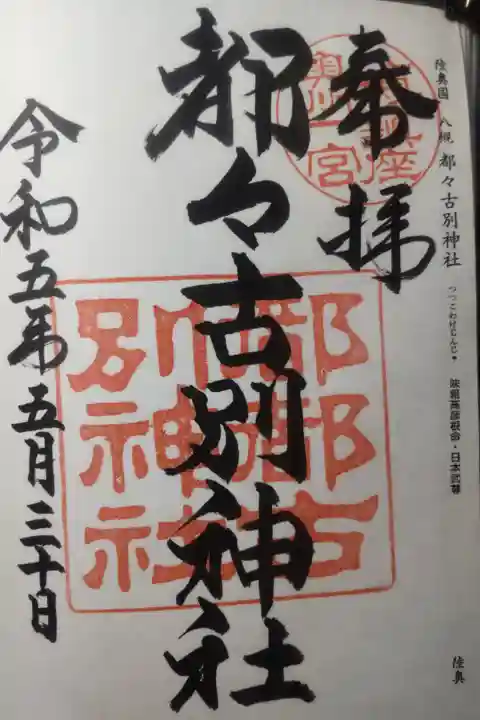 陸奥國 八槻 都々古別神社 つつこわけじんじゃ 味耜高彦根命・日本武尊
陸奥
奉拝
都々古別神社
令和五年五月三十日
都都古
別神社
一宮